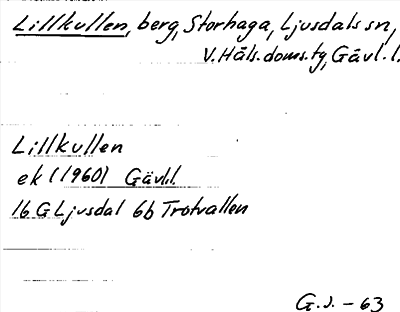 Lillkullen, berg, Storhaga, Ljusdals sn,
V. Häls. doms. tg, Gävl. l.
Lillkullen
ek (1960) Gävl.l.
16 G Ljusdal 6b Trotvallen
G.J. - 63